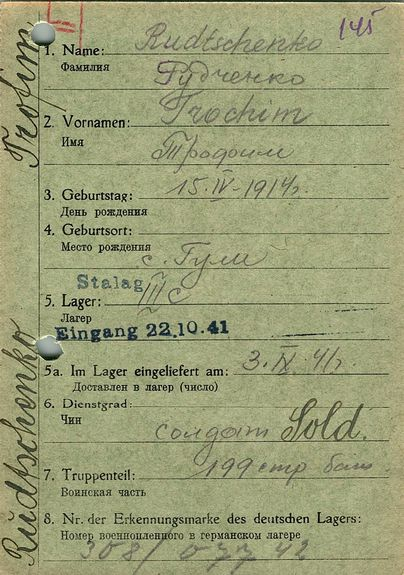 145
1. Name: Rudtschenko
Фамилия
Рудченко
2. Vornamen: Trochim
Имя
Трофим
3. Geburtstag: 15.IV-1914г
День рождения
4. Geburtsort:
Место рождения
с. Гули
Stalag
5. Lager: III c
Лагер
Eingang 22.10.41
5a. Im Lager eingeliefert am: 3.IX.41г
Доставлен в лагер (число)
6. Dienstgrad:
Чин
солдат Sold.
199 стр бат
7. Truppenteil:
Воинская часть
8. Nr. der Erkennungsmarke des deutschen Lagers:
Номер военнопленного в германском лагере
308/
Rudtschenko Trofim